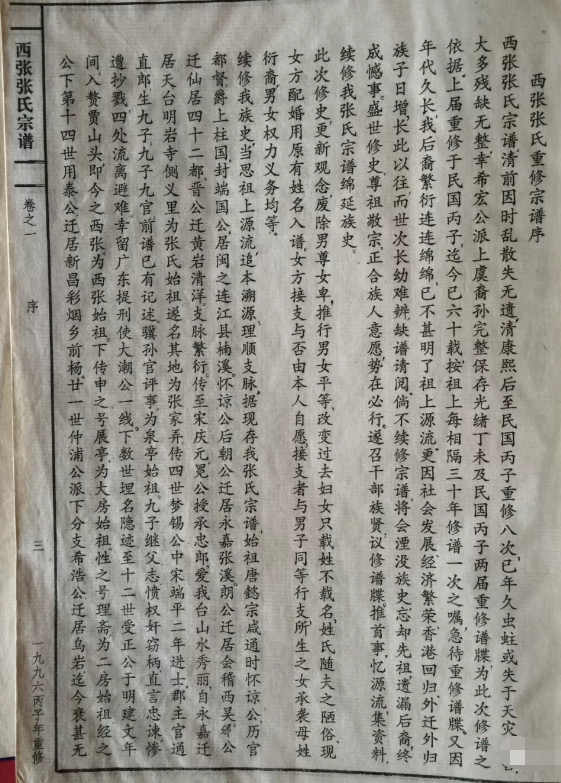 西张张氏重修宗谱序
西张张氏宗谱清前因时乱散失无遗清康熙后至民国丙子重修八次已年久虫蛀或失于天灾
大多残缺无整幸希宏公派上虞裔孙完整保存光绪丁未及民国丙子两届重修谱牒为此次修谱之
依据上届重修于民国丙子迄今已六十载按祖上每相隔三十年修谱一次之嘱急待重修谱牒又因
年代久长我后裔繁衍连连绵绵已不甚明了祖上源流更因社会发展经济繁荣香港回归外迁外归
族子日增长此以往而世次长幼难辨缺谱请阅倘不续修宗谱将会湮没族史忘却先祖遗漏后裔终
成憾事盛世修史尊祖敬宗正合族人意愿势在必行遂召干部族贤议修谱牒推首事忆源流集资料
续修我张氏宗谱绵延族史
此次修史更新观念废除男尊女卑推行男女平等改变过去妇女只载姓不载名姓氏随夫之陋俗现
女方配婚用原有姓名入谱女方接支与否由本人自愿接支者与男子同等行支所生之女承袭母姓
衍裔男女权力义务均等
续修我族史当思祖上源流追本溯源理顺支脉据现存我张氏宗谱始祖唐懿宗咸通时怀谅公历官
都督爵上柱国封端国公居闽之连江县楠溪怀谅公后朝公迁居永嘉张溪朗公迁居会稽西吴郊公
迁仙居四十二都晋公迁黄岩清洋支脉繁衍传至宋庆元冕公授承忠郎爱我台山水秀丽自永嘉迁
居天台明岩寺侧义里为张氏始祖遂名其地为张家弄传四世梦锡公中宋端平二年进士郡主官通
直郎生九子九子九官前谱已有记述骥孙官评事为泉亭始祖九子继父志愤权奸窃柄直言忠谏惨
遭抄戮四处流离避难幸留广东提刑使大潮公一线下数世埋名隐迹至十二世受正公于明建文年
间入赘贾山头即今之西张为西张始祖下传申之号展亭为大房始祖性之号理斋为二房始祖经之
公下第十四世用泰公迁居新昌彩烟乡前杨廿一世仲浦公派下分支希浩公迁居乌岩迄今衰甚无
西张张氏宗谱
卷之一
序
三
一九九六丙子年重修